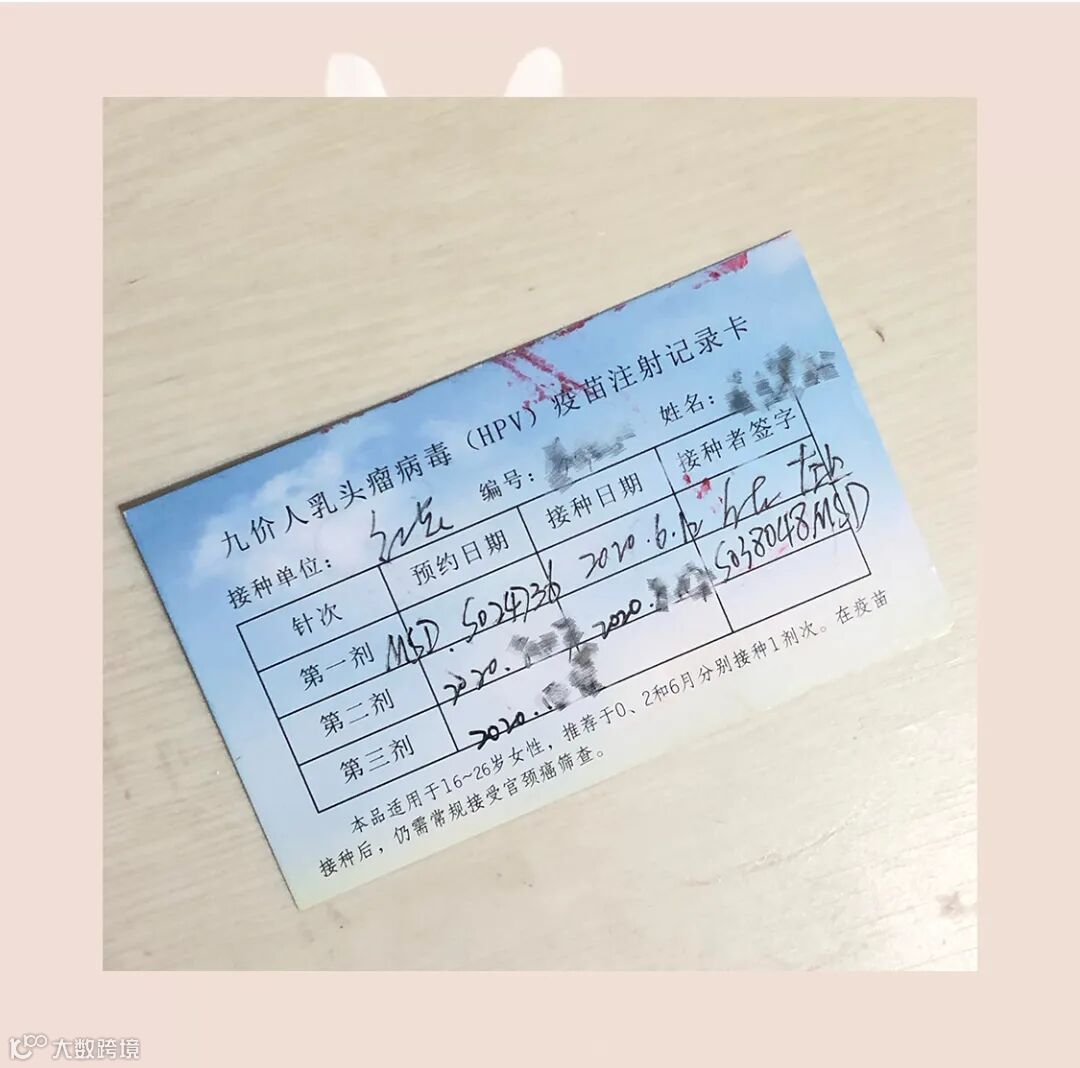 九价人乳头瘤病毒（HPV）疫苗注射记录卡
接种单位： 编号： 姓名：
针次 预约日期 接种日期 接种者签字
第一剂 MSD. S024736 2020.6.10
第二剂 2020. 2020. S038048MSD
第三剂 2020.
本品适用于16~26岁女性，推荐于0、2和6月分别接种1剂次。在疫苗
接种后，仍需常规接受宫颈癌筛查。
大数跨境